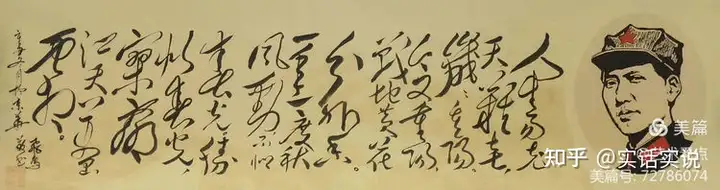 人生易老
天難老
歲歲重陽
今又重陽
戰地黃花
分外香
一年一度秋
風勁不似
春光勝
似春光
寥廓
江天萬里
霜
美篇
知乎 @实话实说
美篇号: 72786074